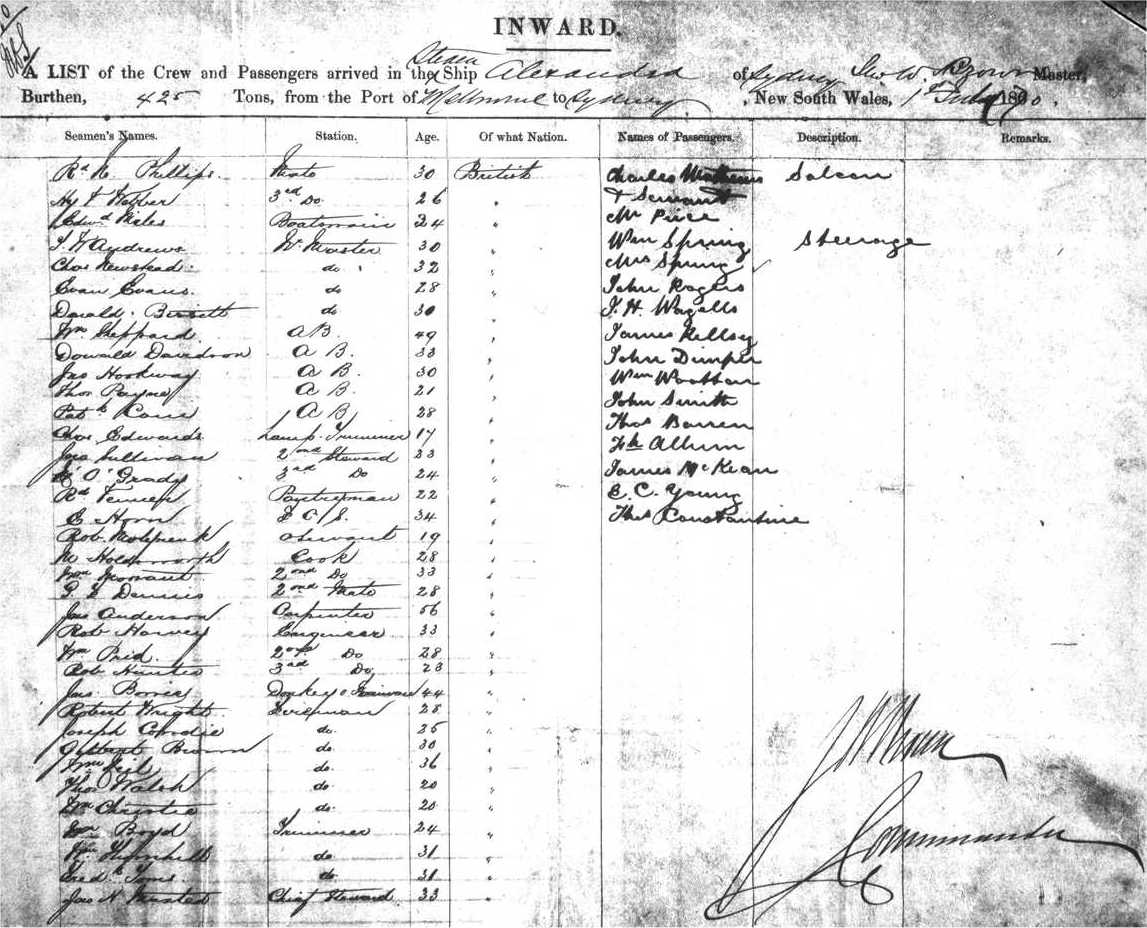 INWARD.
Steam
A LIST of the Crew and Passengers arrived in the Ship Alexandra of Sydney Jno W. Brown Master,
Burthen, 425 Tons, from the Port of Melbourne to Sydney, New South Wales, 1st July 18
Seamen's Names. Station. Age. Of what Nation. Names of Passengers. Description. Remarks.
Rd H. Phillips Mate 30 British Charles Mathews Saloon
Hy T Webber 3rd Do. 26 " & Servant
Edwd Miles Boatswain 24 " Mr Pirie
T. H Andrews Qr Master 30 " Wm Spring Steerage
Chas Newstead do 32 " Mrs Spring
Evan Evans do 28 " John Rogers
Donald Bissett do 30 " J. H. Wagells
Wm Sheppard A B. 49 " James Kellsy
Donald Davidson A B. 33 " John Dimper
Jas Hookway A B. 30 " Wm Wootton
Thos Payne A B. 21 " John Smith
Patk Cane A B 28 " Thos Barren
Chas Edwards Lamp Trimmer 17 " Fk Allum
Jas Sullivan 2nd Steward 23 " James McKean
O'Grady 3rd Do 24 " E. C. Young
Rd Pantryman 22 " Thos Constantine
E Horn F C/S. 34 "
Rob. Servant 19 "
M Holdsworth Cook 28 "
Wm 2nd Do 33 "
G. E Dennis 2nd Mate 28 "
Jas Anderson Carpenter 56 "
Rob Harvey Engineer 33 "
Wm Prid 2nd Do 28 "
Rob Hunter 3rd Do 23 "
Jas. Borrie Donkey 44 "
Robert Wright Fireman 28 "
Joseph Condie do. 25 "
Gilbert Brown do. 30 "
Wm do. 36 "
Thos Walsh do. 20 "
Wm Christie do. 20 "
Wm Boyd Trimmer 24 "
Wm Thornhill do. 31 "
Fredk Toms do. 31 "
Jas H Chief Steward 33 "
J W Brown
Commander